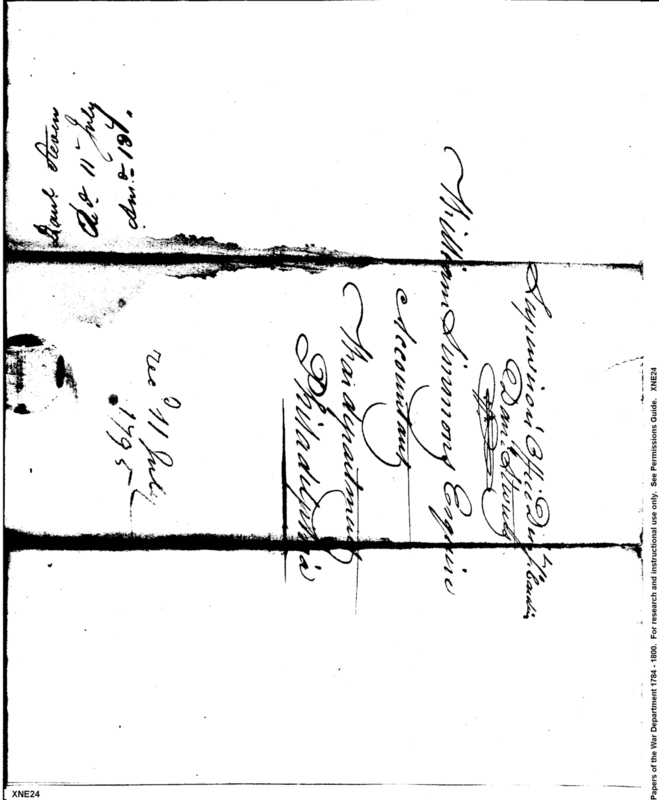 Supervisor's Office So. Carolin
Danl. Stevens
William Simmons Esquire
Accountant
War department
Philadelphia
rec'd 11 July
1795
Danl Stevens
Rec'd 11 July
Papers of the War Department 1784 - 1800. For research and instructional use only. See Permissions Guide. XNE24
XNE24